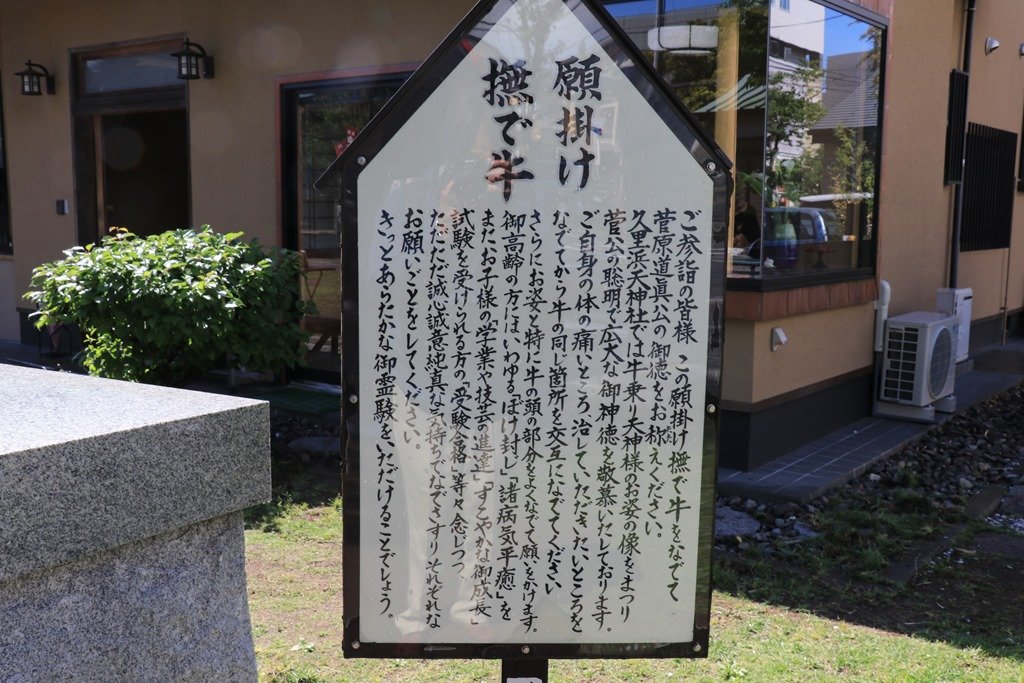 願掛け
撫で牛
ご参詣の皆様 この願掛け撫で牛をなでて
菅原道真公の御徳をお称えください。
久里浜天神社では牛乗り天神様のお姿の像をまつり
菅公の聡明で広大な御神徳を敬慕いたしております。
ご自身の体の痛いところ、治していただきたいところを
なでてから牛の同じ箇所を交互になでてください
さらにお姿、特に牛の頭の部分をよくなでて願いをかけます。
御高齢の方には、いわゆる「ぼけ封じ」「諸病気平癒」を
またお子様の学業や技芸の進達」「すこやかな御成長」
試験を受けられる方の「受験合格」等々念じつつ
ただただ誠心誠意純真な気持ちでなでさすりそれぞれな
お願いごとをしてください。
きっとあらたかな御霊験をいただけることでしょう。